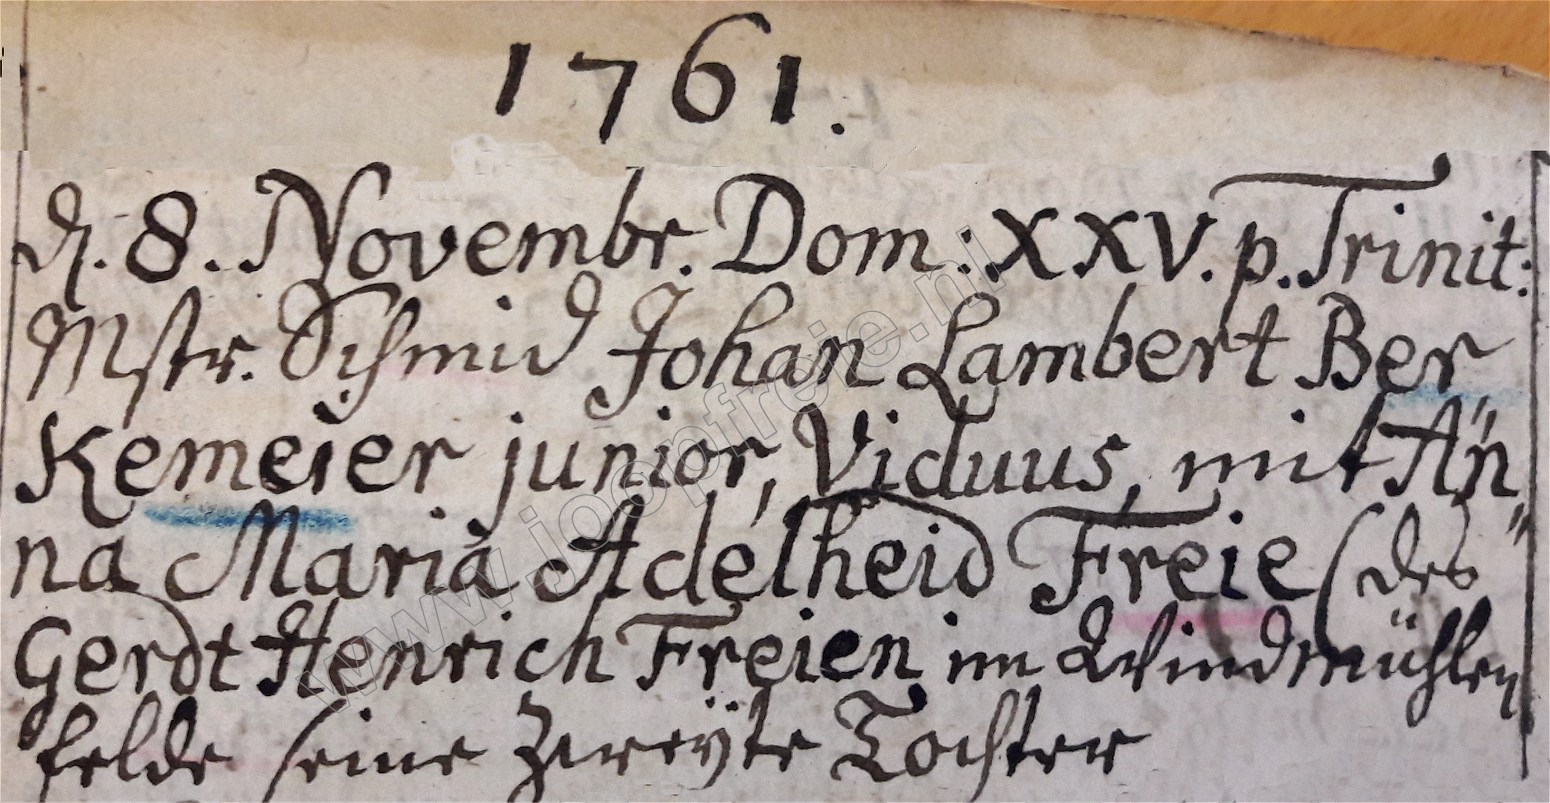 1761.
d. 8. Novembr. Dom: XXV. p. Trinit:
Mstr. Schmid Johan Lambert Ber
Kemeier junior, Viduus, mit An"
na Maria Adelheid Freie (des"
Gerdt Henrich Freien im Windmühlen
felde seine zweÿte Tochter
www.joopfreie.nl